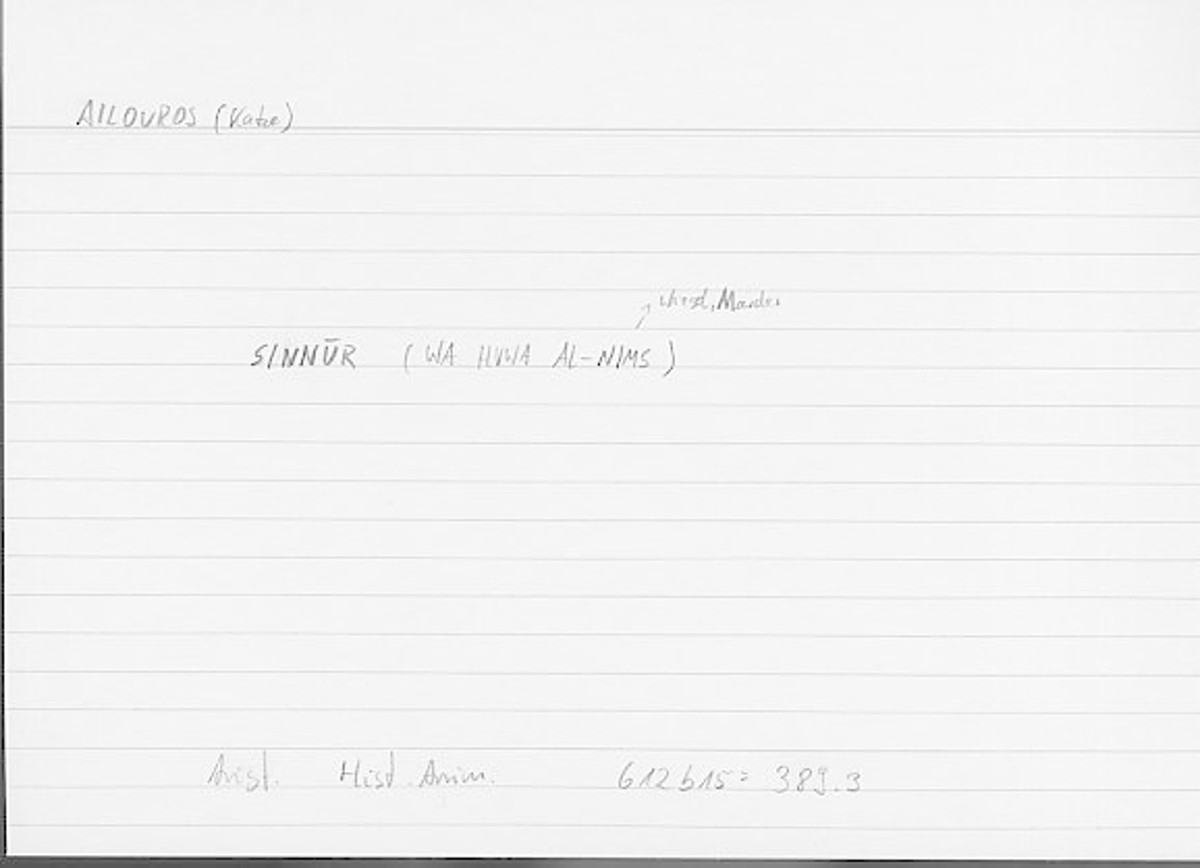 AILOUROS (Katze)
Marder
SINNŪR (WA HUWA AL-NIMS)
Arist. Hist. Anim. 612b15 = 389.3